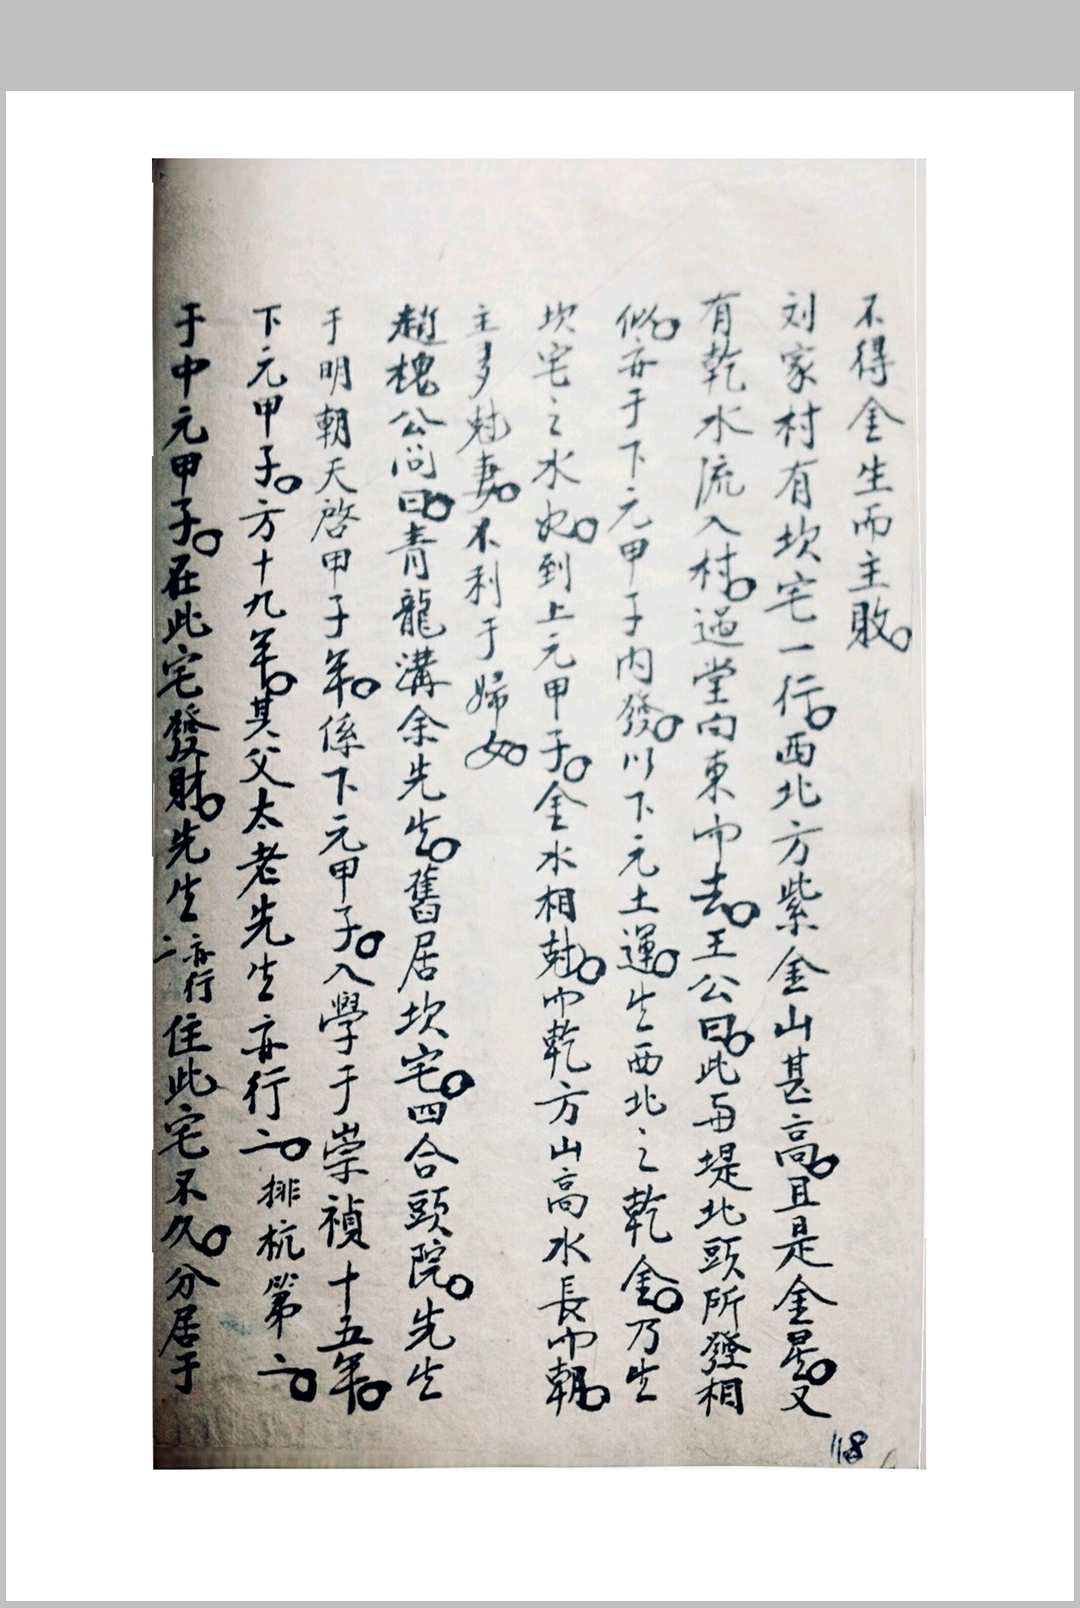 不得金生而主敗。
刘家村有坎宅一行。西北方紫金山甚高。且是金星。又
有乾水流入村。過堂向東巾去。王公曰。此与堤北頭所發相
似。亦于下元甲子内發。以下元土運。生西北之乾金。乃生
坎宅之水也。到上元甲子。金水相尅。巾乾方山高水長巾朝。
主多尅妻。不利于婦女。
趙槐公问曰。青龍溝余先生。舊居坎宅。四合頭院。先生
于明朝天啓甲子年。係下元甲子。入學于崇禎十五年。
下元甲子。方十九年。其父太老先生亦行二。排杭第二。
于中元甲子。在此宅發財。先生亦行二住此宅不久。分居于
118